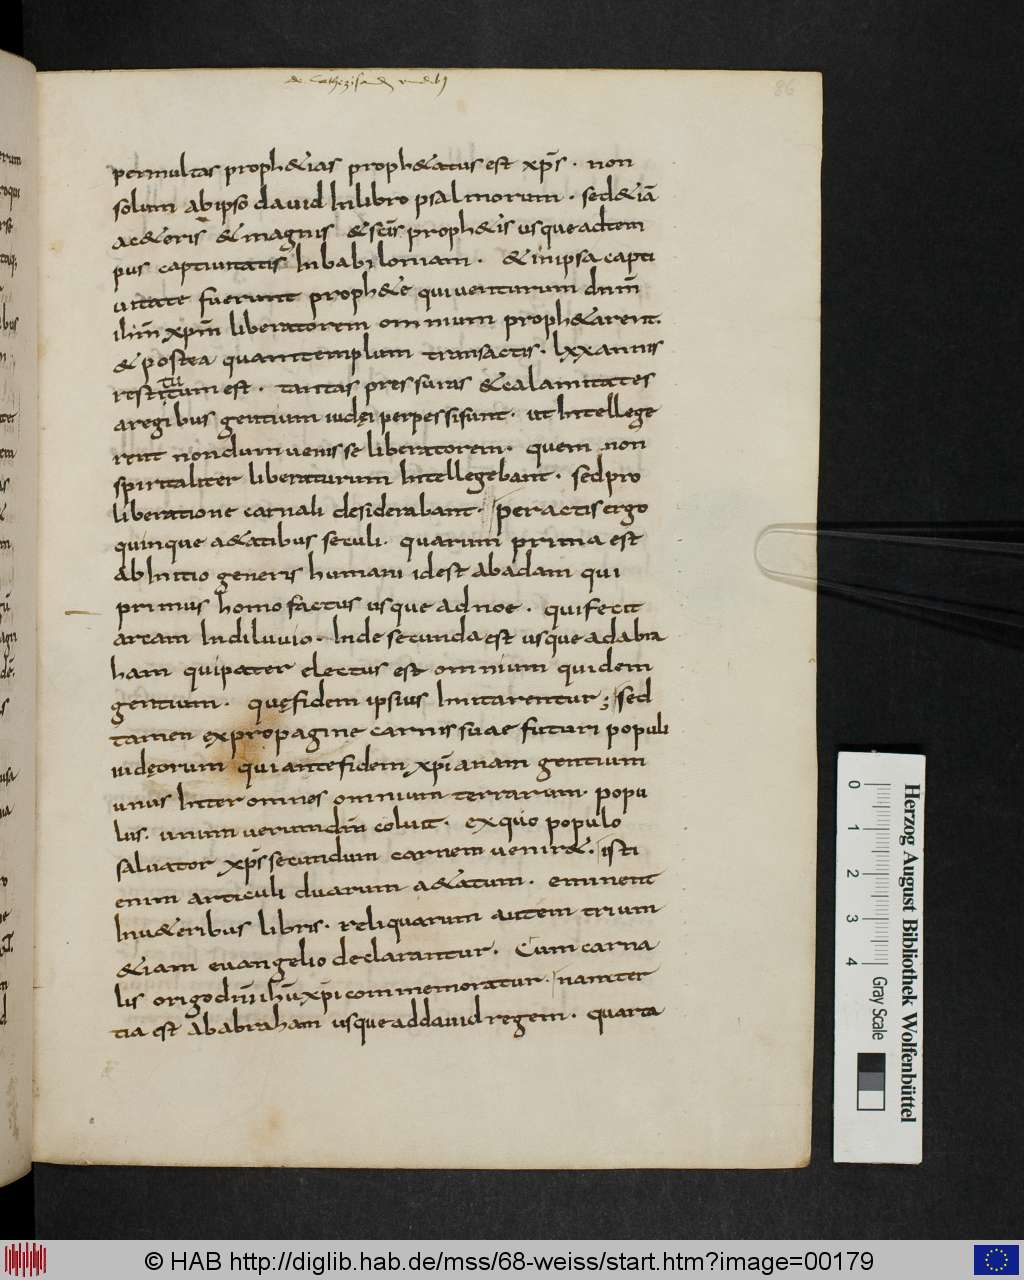 de Cathezisand rudib3
86
permultas proph&ias proph&atus est xp̄s · non
solum ab ipso david In libro psalmorum · sed&iā
ac&eris & magnis & sc̄is proph&is usque ad tem
pus captivitatis In babiloniam · & in ipsa capti
vitate fuerunt proph&e qui venturum dnm̄
ihm̄ xpm̄ liberatorem omnium proph&arent.
& postea quam templum transactis · lxx annis
restitutum est · tantas pressuras & calamitates
a regibus gentium iudęi perpessi sunt · ut Intellege
rent nondum venisse liberatorem · quem non
spiritaliter liberaturum Intellegebant · sed pro
liberatione carnali desiderabant · peractis ergo
quinque a&atibus seculi · quarum prima est
ab Initio generis humani id est ab adam qui
primus homo factus usque ad noe · qui fecit
arcam In diluvio · Inde secunda est usque ad abra
ham qui pater electus est omnium quidem
gentium · quę fidem ipsius Imitarentur; sed
tamen ex propagine carnis suae futuri populi
iudęorum qui ante fidem xp̄ianam gentium
unus Inter omnes omnium terrarum · popu
lus · unum verum dm̄ coluit · ex quo populo
salvator xp̄s secundum carnem venir& · isti
enim articuli duarum a&atum · eminent
In v&eribus libris · reliquarum autem trium
&iam euangelio declarantur · Cum carna
lis origo dn̄i ihū xp̄i commemoratur · nam ter
tia est ab abraham usque ad david regem · quarta
Herzog August Bibliothek Wolfenbüttel
0 1 2 3 4 Gray Scale
© HAB http://diglib.hab.de/mss/68-weiss/start.htm?image=00179